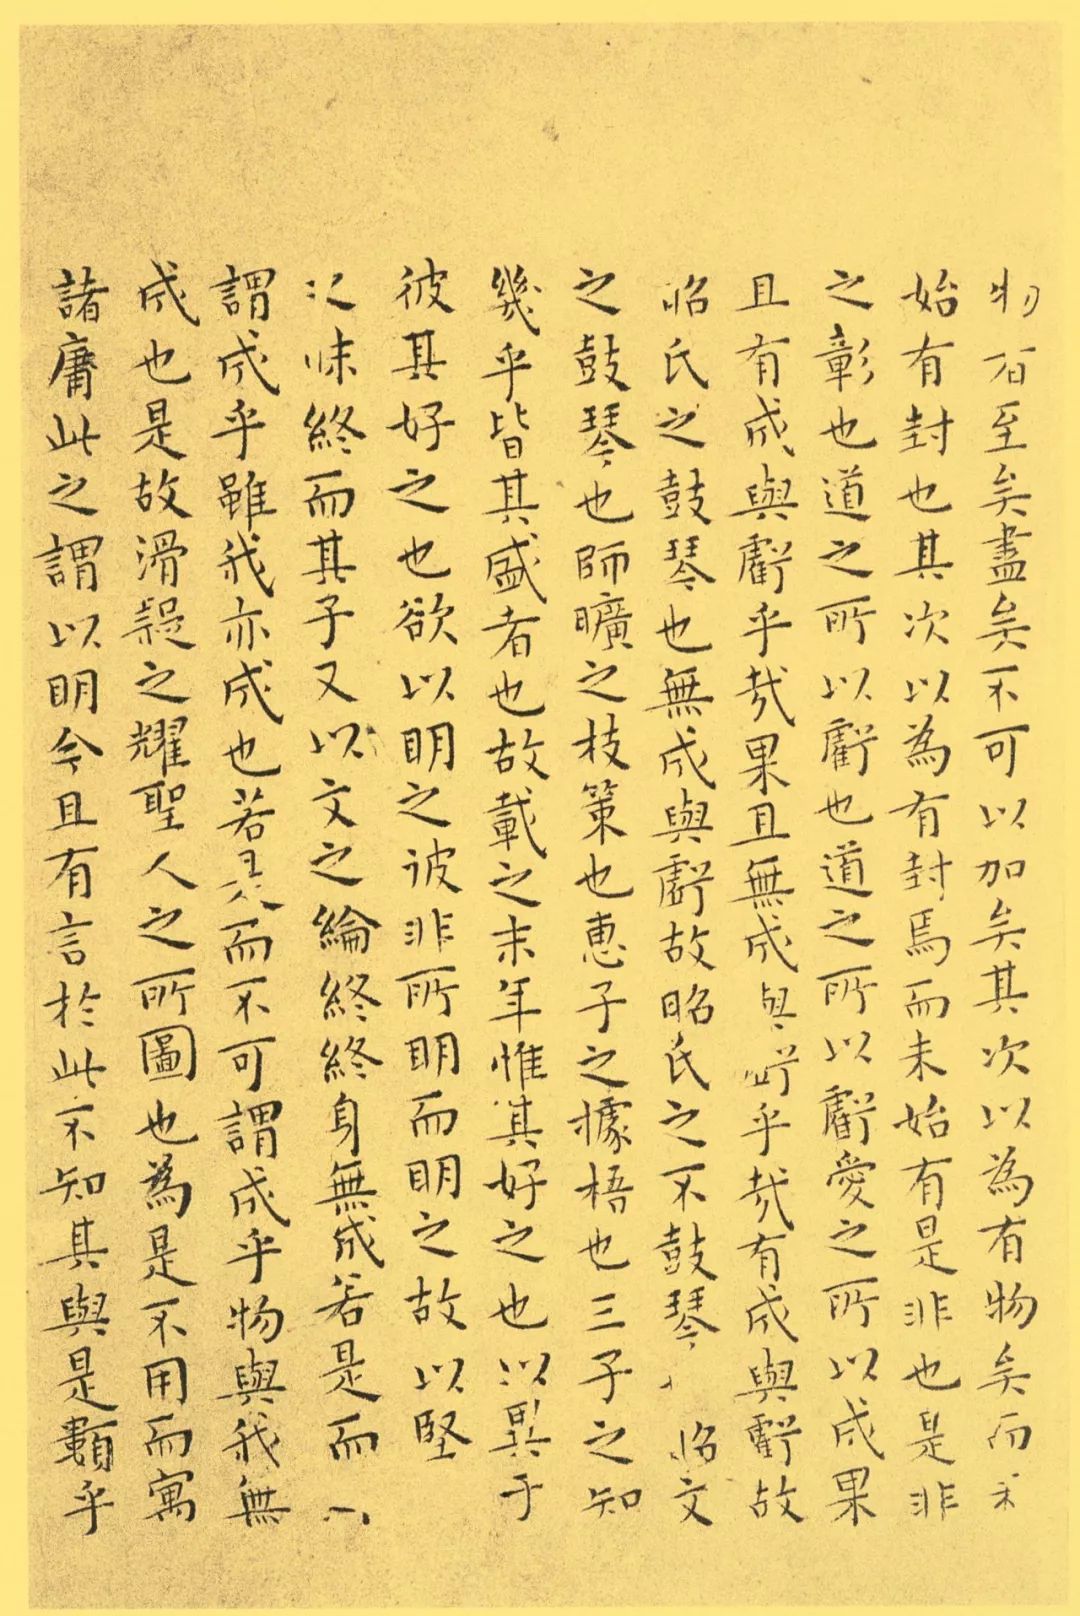 物者至矣盡矣不可以加矣其次以為有物矣而未
始有封也其次以為有封焉而未始有是非也是非
之彰也道之所以虧也道之所以虧愛之所以成果
且有成與虧乎哉果且無成與虧乎哉有成與虧故
昭氏之鼓琴也無成與虧故昭氏之不鼓琴 昭文
之鼓琴也師曠之枝策也惠子之據梧也三子之知
幾乎皆其盛者也故載之末年惟其好之也以異于
彼其好之也欲以明之彼非所明而明之故以堅
之昧終而其子又以文之綸終終身無成若是而
謂成乎雖我亦成也若是而不可謂成乎物與我無
成也是故滑疑之耀聖人之所圖也為是不用而寓
諸庸此之謂以明今且有言於此不知其與是類乎